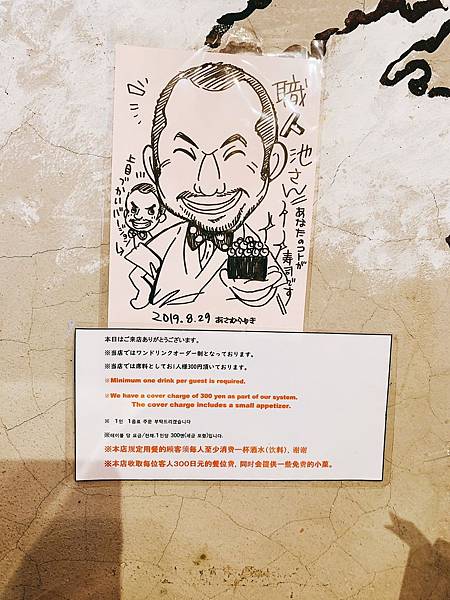 職人
池さん!!
あなたのコトが
寿司です
上目づかいバージョン
2019.8.29
本日はご来店ありがとうございます。
※当店ではワンドリンクオーダー制となっております。
※当店では席料としてお1人様300円頂いております。
※Minimum one drink per guest is required.
※We have a cover charge of 300 yen as part of our system.
The cover charge includes a small appetizer.
※ 1인 1음료 주문 부탁드리겠습니다
※테이블 당 요금/전채.1인당 300엔(세금 포함)입니다.
※本店规定用餐的顾客须每人至少消费一杯酒水(饮料), 谢谢
※本店收取每位客人300日元的餐位费, 同时会提供一些免费的小菜。